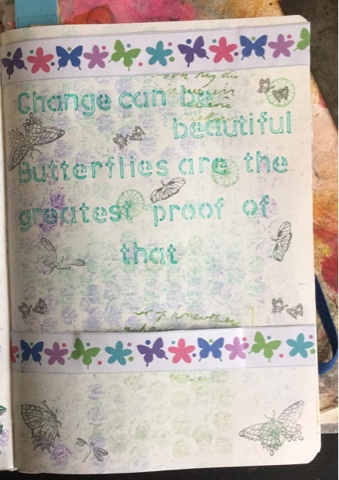 Change can be
beautiful
Butterflies are the
greatest proof of
that